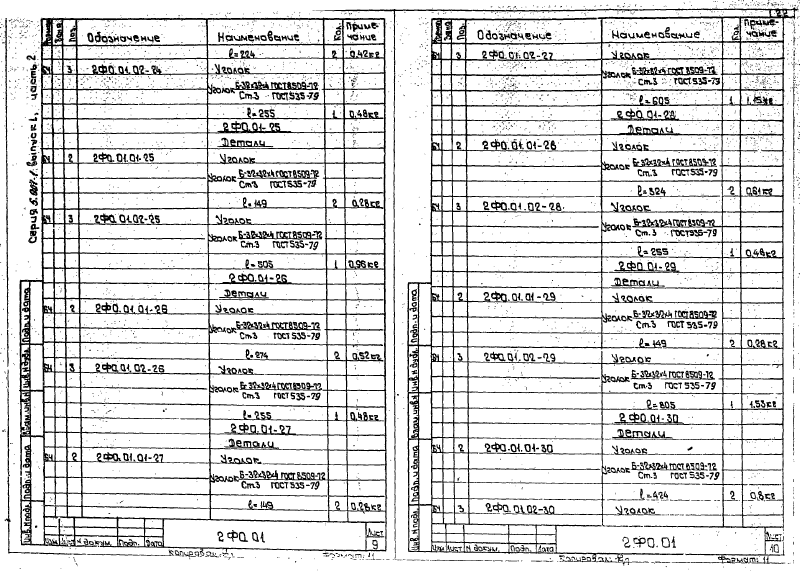 22
Серия 5.407-1. Выпуск 1, часть 2
Поз. Обозначение Наименование Кол. Примечание
ℓ=224 2 0,42кг
БЧ 3 2ФО.01.02-24 Уголок
Уголок Б-32х32х4 ГОСТ 8509-72
Ст.3 ГОСТ 535-79
ℓ=255 1 0,48кг
2ФО.01-25
Детали
БЧ 2 2ФО.01.01-25 Уголок
Уголок Б-32х32х4 ГОСТ 8509-72
Ст.3 ГОСТ 535-79
ℓ=149 2 0,28кг
БЧ 3 2ФО.01.02-25 Уголок
Уголок Б-32х32х4 ГОСТ 8509-72
Ст.3 ГОСТ 535-79
ℓ=505 1 0,96кг
2ФО.01-26
Детали
БЧ 2 2ФО.01.01-26 Уголок
Уголок Б-32х32х4 ГОСТ 8509-72
Ст.3 ГОСТ 535-79
ℓ=274 2 0,52кг
БЧ 3 2ФО.01.02-26 Уголок
Уголок Б-32х32х4 ГОСТ 8509-72
Ст.3 ГОСТ 535-79
ℓ=255 1 0,48кг
2ФО.01-27
Детали
БЧ 2 2ФО.01.01-27 Уголок
Уголок Б-32х32х4 ГОСТ 8509-72
Ст.3 ГОСТ 535-79
ℓ=149 2 0,28кг
Инв.№подл. Подп. и дата Взам.инв.№ Инв.№дубл. Подп. и дата
Изм Лист №докум. Подп. Дата
2ФО.01
Лист
9
Копировал:
Формат 11
Поз. Обозначение Наименование Кол. Примечание
БЧ 3 2ФО.01.02-27 Уголок
Уголок Б-32х32х4 ГОСТ 8509-72
Ст.3 ГОСТ 535-79
ℓ=605 1 1,15кг
2ФО.01-28
Детали
БЧ 2 2ФО.01.01-28 Уголок
Уголок Б-32х32х4 ГОСТ 8509-72
Ст.3 ГОСТ 535-79
ℓ=324 2 0,61кг
БЧ 3 2ФО.01.02-28 Уголок
Уголок Б-32х32х4 ГОСТ 8509-72
Ст.3 ГОСТ 535-79
ℓ=255 1 0,48кг
2ФО.01-29
Детали
БЧ 2 2ФО.01.01-29 Уголок
Уголок Б-32х32х4 ГОСТ 8509-72
Ст.3 ГОСТ 535-79
ℓ=149 2 0,28кг
БЧ 3 2ФО.01.02-29 Уголок
Уголок Б-32х32х4 ГОСТ 8509-72
Ст.3 ГОСТ 535-79
ℓ=805 1 1,53кг
2ФО.01-30
Детали
БЧ 2 2ФО.01.01-30 Уголок
Уголок Б-32х32х4 ГОСТ 8509-72
Ст.3 ГОСТ 535-79
ℓ=424 2 0,8кг
БЧ 3 2ФО.01.02-30 Уголок
Инв.№подл. Подп. и дата Взам.инв.№ Инв.№дубл. Подп. и дата
Изм Лист №докум. Подп. Дата
2ФО.01
Лист
10
Копировал:
Формат 11